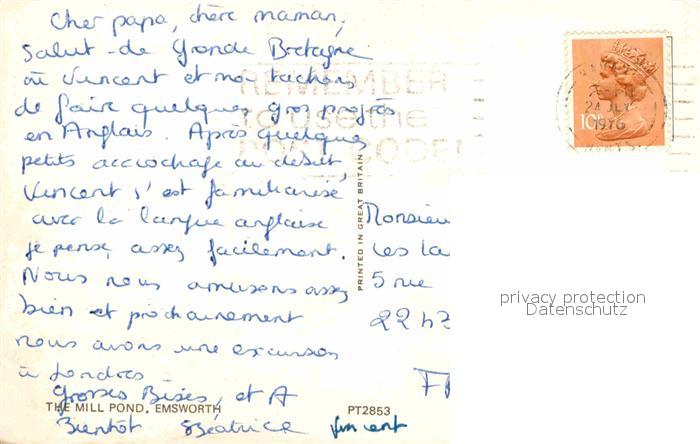 Cher papa, chère maman,
Salut de Grande Bretagne
où Vincent et moi tachons
de faire quelques gros progrès
en Anglais. Après quelques
petits accrochage au début,
Vincent s'est familiarisé
avec la langue anglaise
je pense, assez facilement.
Nous nous amusons assez
bien et prochainement
nous avons une excursion
à Londres
Grosses Bises, et A
Bientôt Béatrice Vincent
THE MILL POND, EMSWORTH
PT2853
PRINTED IN GREAT BRITAIN
REMEMBER
to use the
POSTCODE
24 JLY
1976
HANTS
10P
Monsieur
Les
5 rue
privacy protection
Datenschutz